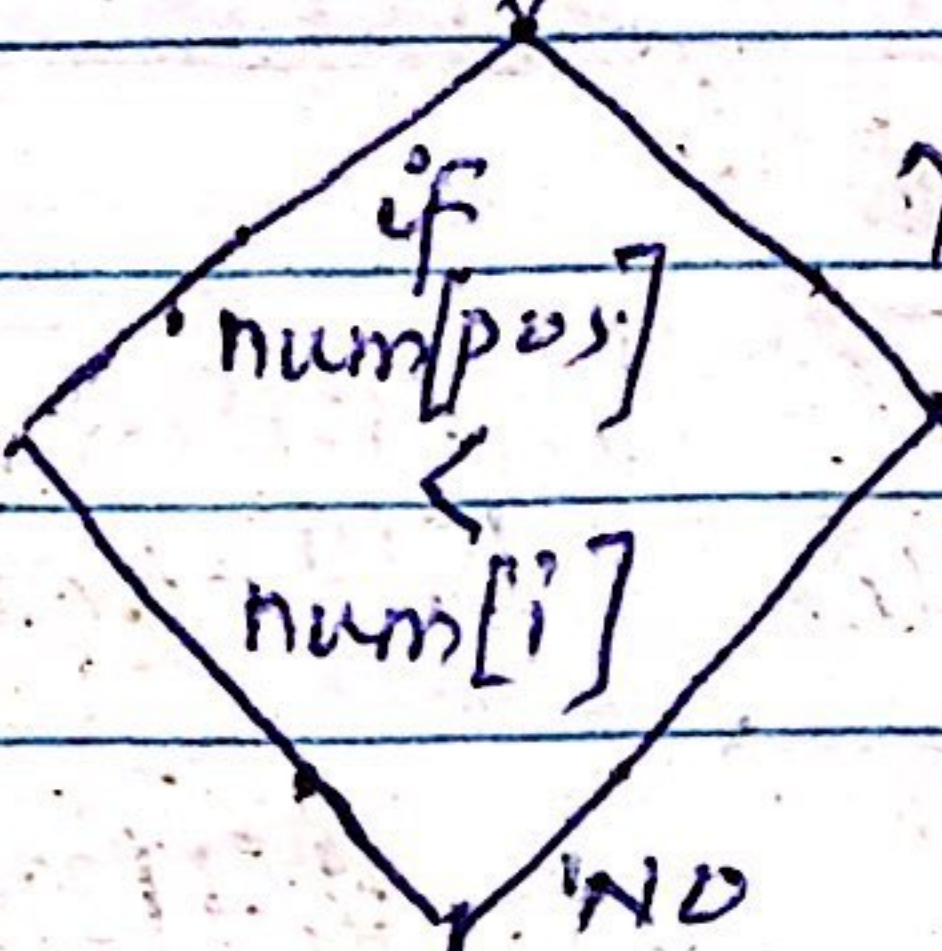 if
num[pos]
<
num[i]
NO